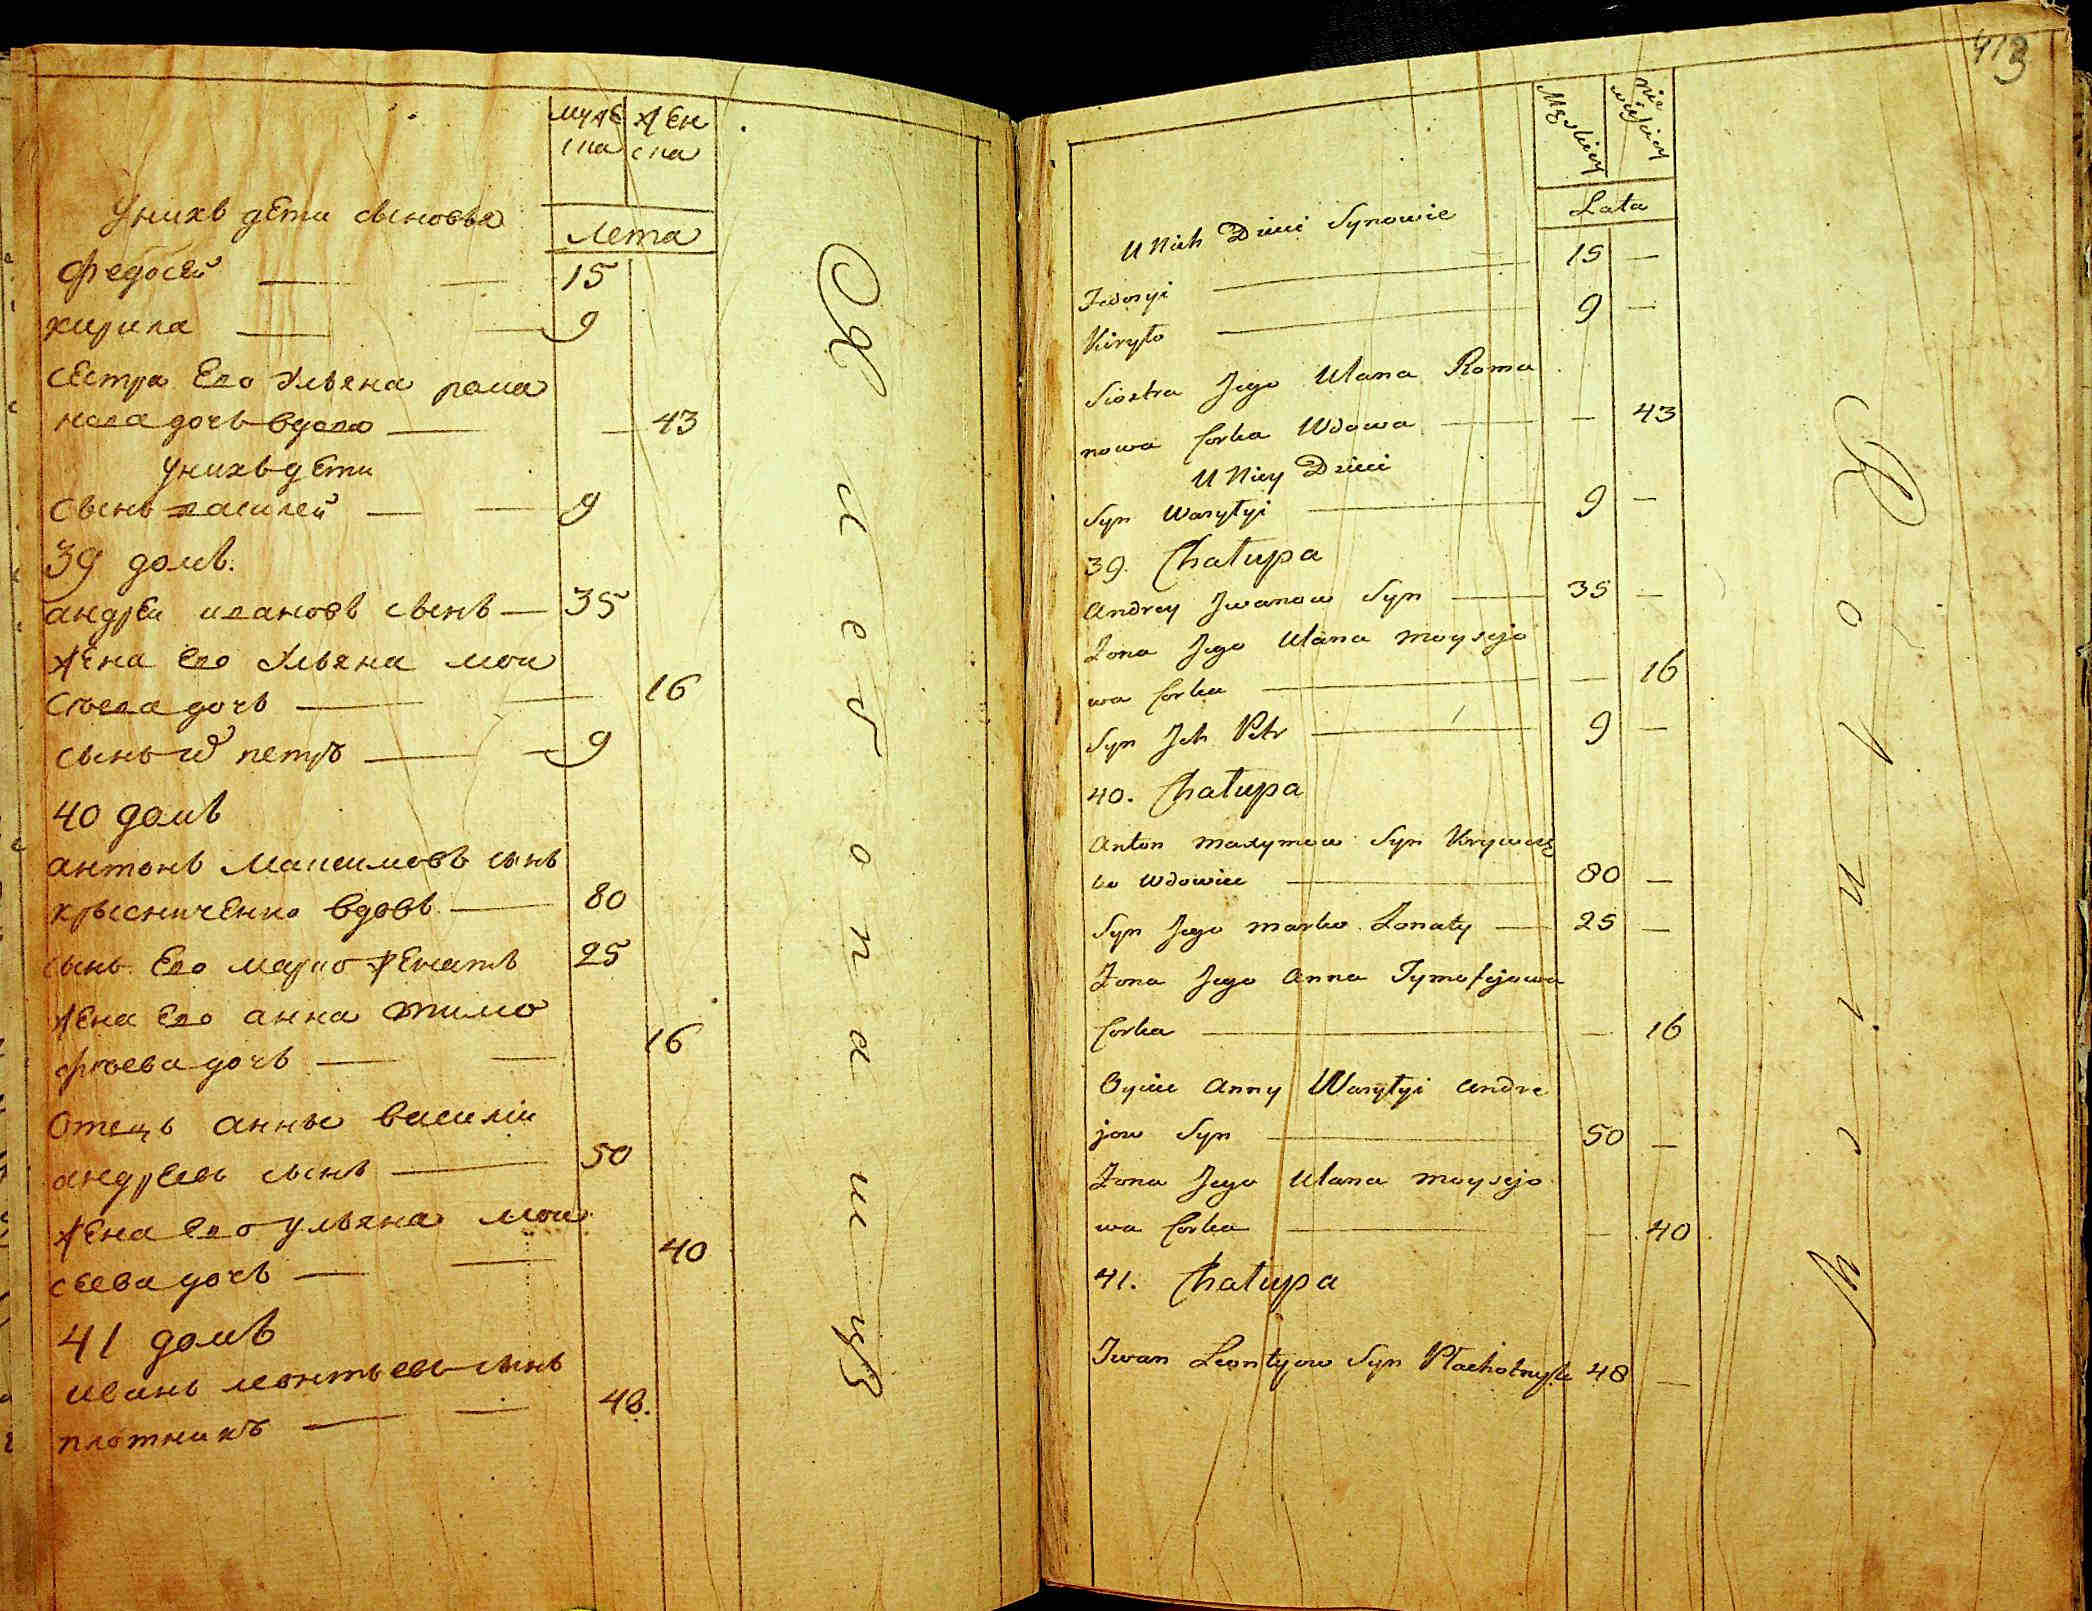 муже ска
женска
лета
Унихъ дети сыновья
Федосей 15
кирила 9
сестра Его Ульяна рома
нова дочь вдова 43
унихъ дети
сынъ василей 9
39 домъ.
андрей ивановъ сынъ 35
жена его Ульяна мои
сѣева дочь 16
сынъ петръ 9
40 домъ
антонъ Максимовъ сынъ
вдовъ 80
сынъ Его марко женатъ 25
жена Его анна тимо
фѣева дочь 16
Отецъ анны василий
андрѣевъ сынъ 50
жена Его ульяна мои
сеева дочь 40
41 домъ
иванъ леонтьевъ сынъ
плотникъ 48.
Хлебопашцъ
413
Męskiey
niewiesciey
Lata
U Nich Dzieci Synowie
Fedosyi 15 —
Kiryło 9 —
Siostra Jego Ulana Roma
nowa Corka Wdowa — 43
U Niey Dzieci
Syn Wasylyi 9 —
39. Chałupa
Andrey Jwanow Syn 35 —
Zona Jego Ulana Moysejo
wa Corka — 16
Syn Jch Petr 9 —
40. Chałupa
Anton Maxymow Syn
ko Wdowiec 80 —
Syn Jego Marko Zonaty 25 —
Zona Jego Anna Tymofejowa
Corka — 16
Oyciec Anny Wasylyi Andre
jow Syn 50 —
Zona Jego Ulana Moysejo
wa Corka — 40
41. Chałupa
Jwan Leontyow Syn Płachotnyk 48 —
Rolnicy